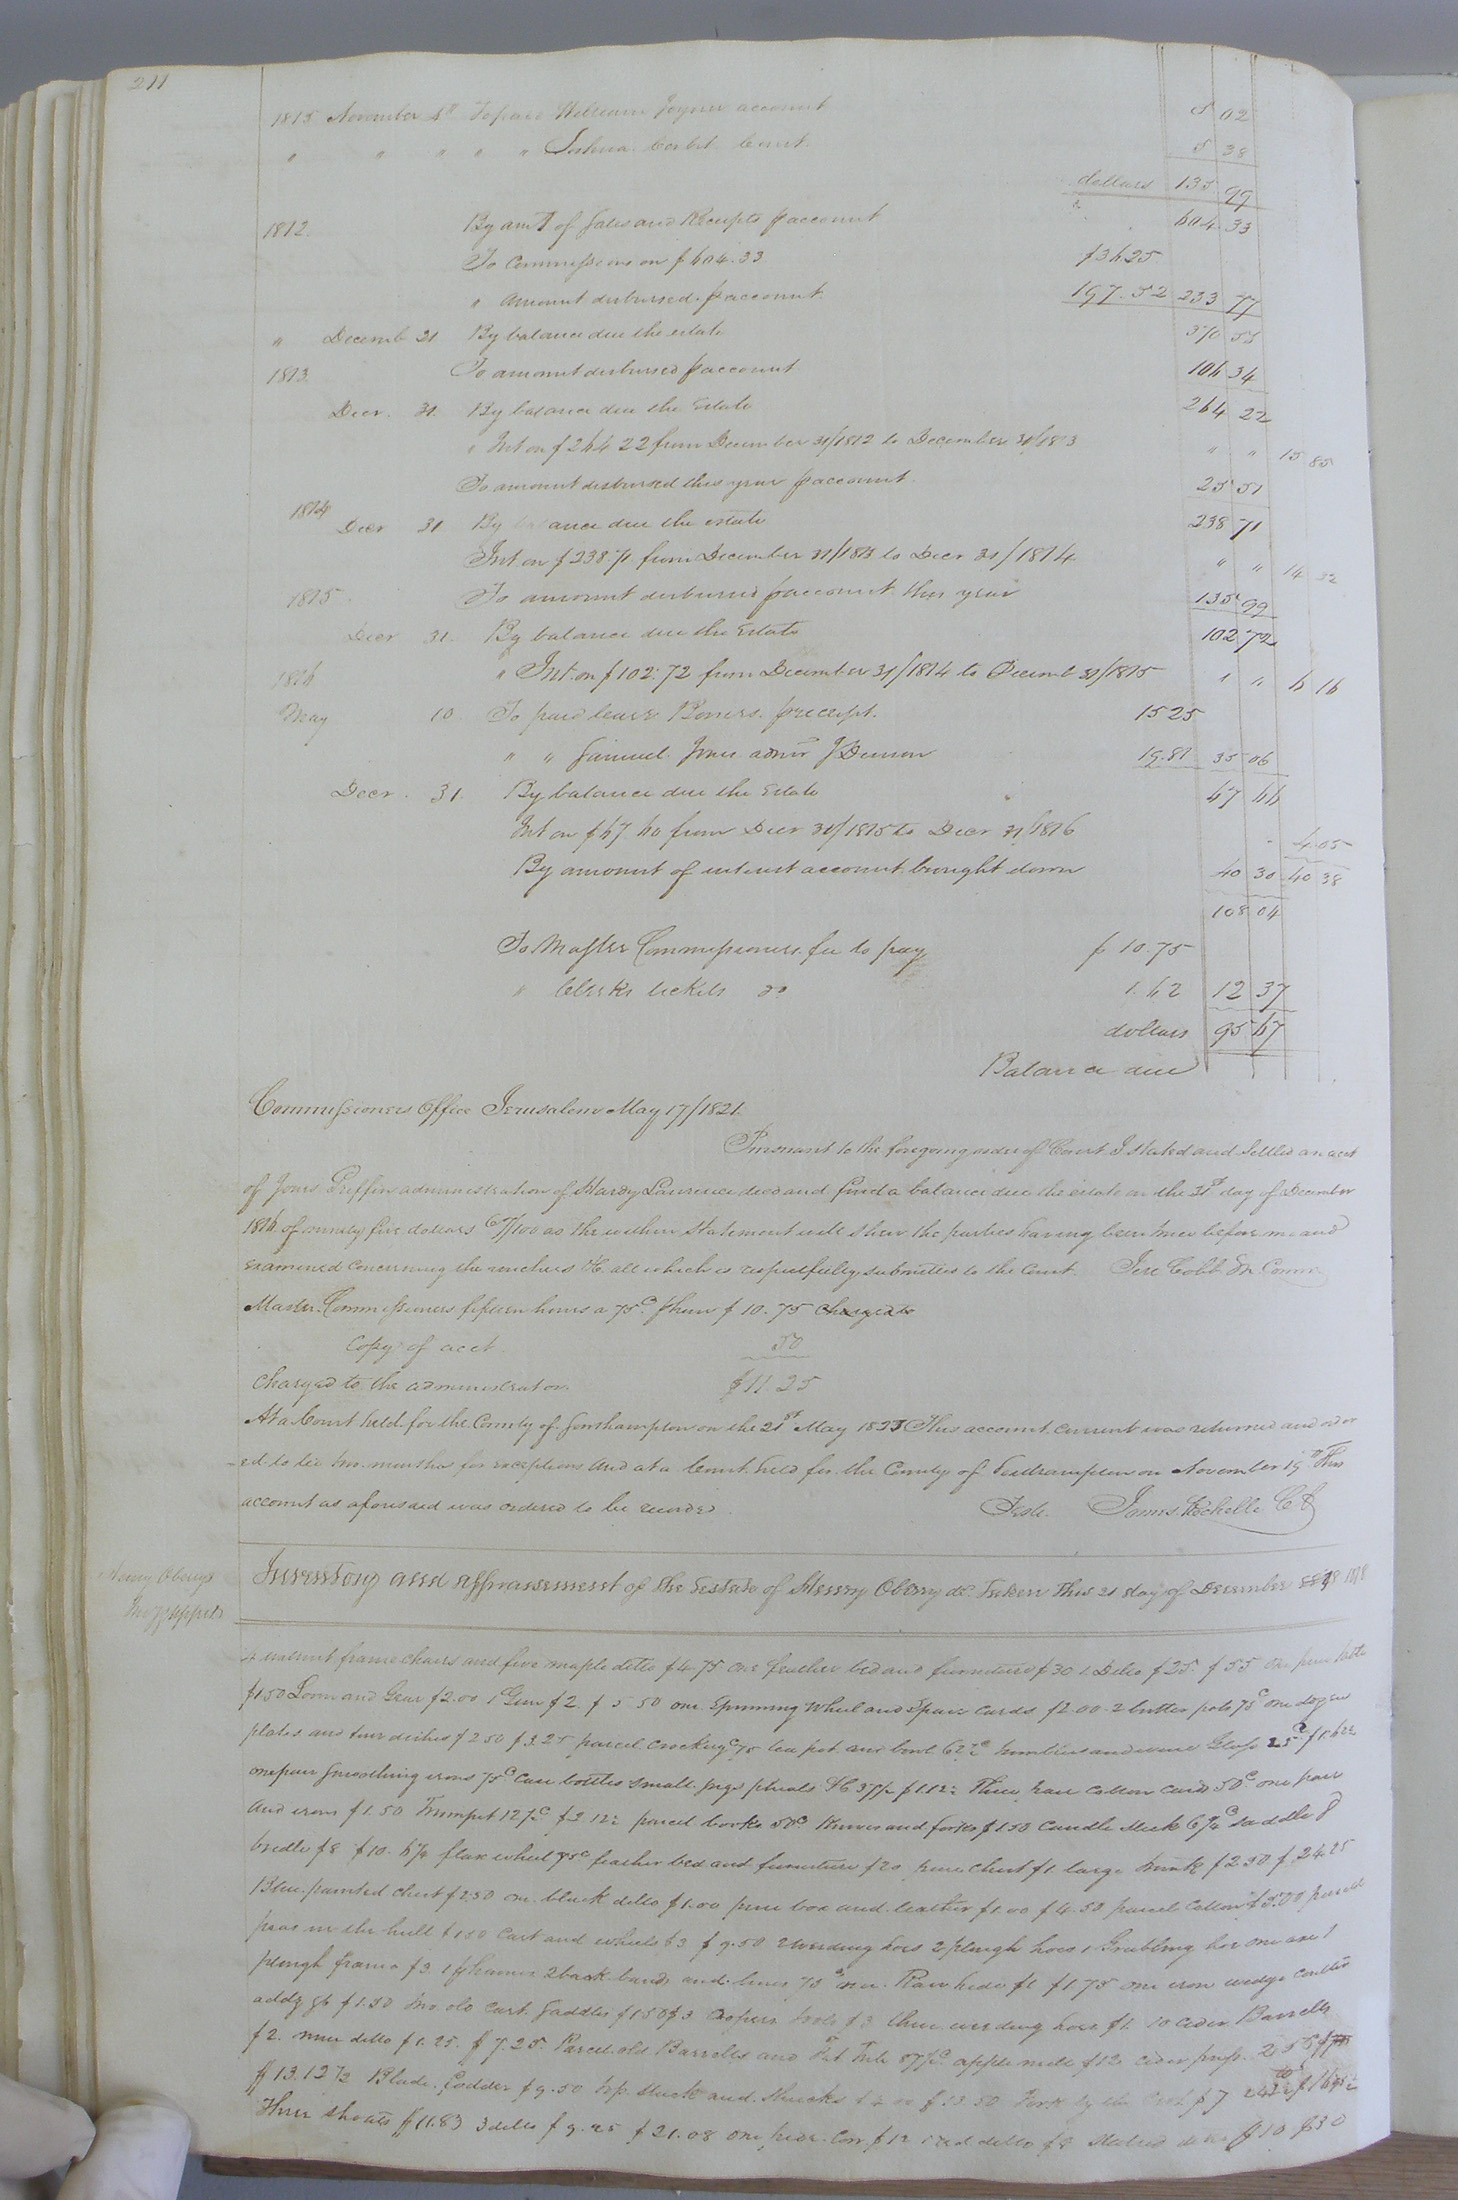 211
1815 November 4th To paid William Joyner account 5 02
" " " " " Joshua Corbit Court 5 38
dollars 135 99
1812. By amt of Sales and Receipts p account 604 33
To Commissions on $604.33 $36 25
" Amount disbursed p account 197.52 233 77
" Decemb 31 By balance due the estate 370 55
1813. To amount disbursed p account 106 34
Decr. 31. By balance due the Estate 264 22
" Int on $264 22 from December 31/1812 to December 31/1813 " " 15 85
To amount disbursed this year p account. 25 51
1814 Decr 31 By balance due the estate 238 71
Int on $238 71 from December 31/1813 to Decr 31/1814 " " 14 32
1815. To amount disbursed p account this year 135 99
Decr 31. By balance due the Estate 102 72
1816 " Int. on $102.72 from December 31/1814 to Decemb 31/1815 " " 6 16
May 10 To paid Bowers. p receipt. 15 25
" " Samuel Jones admr 19.81 35 06
Decr. 31. By balance due the Estate 67 66
Int on $67 60 from Decr 31/1815 to Decr 31/1816 " 4 05
By amount of interest account brought down 40 30 40 38
108 04
To Master Commissioners fee to pay $10.75
" Clerks tickets do 1.62 12 37
dollars 95 67
Balance due
Commissioners Office Jerusalem May 17/1821.
Pursuant to the foregoing order of Court I stated and Settled an acct
of Jones Griffin administration of Hardy Lawrence decd and find a balance due the estate on the 31st day of December
1816 of ninety five dollars 67/100 as the within Statement will shew the parties having been before me and
examined concerning the vouchers &c all which is respectfully submitted to the Court. Jere Cobb M. Comm
Master Commissioners fifteen hours a 75c p hour $10.75 charged to
Copy of acct. 50
Charged to the administrator. $11 25
At a Court held for the County of Southampton on the 21st May 1833 This account current was returned and order
ed to lie two months for exceptions And at a Court held for the County of Southampton on November 19th This
account as aforesaid was ordered to be recorded. Teste. James Rochelle C S
Henry Oberrys
Invy & Apprts
Inventory and appraisement of the Estate of Henry Oberry dc. Taken This 21 day of December 1818
4 walnut frame chairs and five maple ditto $4.75 one feather bed and furniture $30 1 Ditto $25. $55 one pine table
$1.50 Loom and Gear $2.00 1 Gun $2 $5.50 one Spinning Wheel and Spare Cards $2.00 2 butter pots 75c one dozen
plates and four dishes $2 50 $3.25 parcel Crockery 75c tea pot and bowl 62½c tumblers and wine Glass 25c $1.62½
one pair Smoothing irons 75c Case bottles small jugs phials &c 37½ $1.12½ Three pair cotton Cards 50c. one pair
And irons $1.50 Trumpet 12½c $2 12½ parcel books 50c Knives and forks $1.50 Candle Stick 6¼c saddle &
bridle $8 $10.6¼ flax wheel 75c feather bed and furniture $20 pine Chest $1. large trunk $2.50 $24.25
Blue painted chest $2.50 one black ditto $1.00 pine box and leather $1.00 $4.50 parcel Cotton $5.00 parcel
peas in the hull $1 50 Cart and wheels $3 $9.50 2 weeding hoes 2 plough hoes 1 Grubbing hoe one axe 1
plough frame $3. 2 back bands and 75c one Raw hide $1 $1.75 one iron wedge coulter
addz &c $1.50 two old Cart Saddles $1.50 $3 Coopers tools $3 three weeding hoes $1. 10 Cider Barrells
$2. nine ditto $1.25. $7.25. Parcel old Barrells and Fat Tub 87½c apple mill $12 cider press
$13.12½ Blade Fodder $9.50 top stack and Shucks $4 00 $13.50 Fork $7
Three shoats $11.83 3 ditto $9.25 $21.08 one pide Cow $12 1 red ditto $8 $10 $30